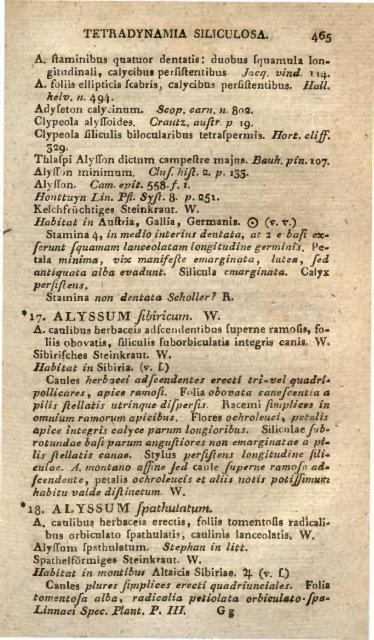 TETRADYNAMIA SILICULOSA. 465
A. ſtaminibus quatuor dentatis: duobus ſquamula lon-
gitudinali, calycibus perſiſtentibus Jacq. vind. 114.
A. foliis ellipticis ſcabris, calycibus perſiſtentibus. Hall.
helv. n. 494.
Adyſeton calycinum. Scop. carn. n. 802.
Clypeola alyſſoides. Crantz. auſtr p. 19.
Clypeola ſiliculis bilocularibus tetraſpermis. Hort. cliff.
329.
Thlaſpi Alyſſon dictum campeſtre majus. Bauh. pin. 107.
Alyſſon minimum. Cluſ. hiſt. 2. p. 133.
Alyſſon. Cam. epit. 558. f. 1.
Houttuyn Lin. Pfl. Syſt. 8. p. 251.
Kelchfrüchtiges Steinkraut. W.
Habitat in Auſtria, Gallia, Germania. ☉ (v. v.)
Stamina 4, in medio interius dentata, at 2 e baſi ex-
ſerunt ſquamam lanceolatam longitudine germinis. Pe-
tala minima, vix manifeſte emarginata, lutea, ſed
antiquata alba evadunt. Silicula emarginata. Calyx
perſiſtens.
Stamina non dentata Scholler? R.
*17. ALYSSUM ſibiricum. W.
A. caulibus herbaceis adſcendentibus ſuperne ramoſis, fo-
liis obovatis, ſiliculis ſuborbiculatis integris canis. W.
Sibiriſches Steinkraut. W.
Habitat in Sibiria. (v. ſ.)
Caules herbacei adſcendentes erecti tri-vel quadri-
pollicares, apice ramoſi. Folia obovata caneſcentia a
pilis ſtellatis utrinque diſperſis. Racemi ſimplices in
omnium ramorum apicibus. Flores ochroleuci, petalis
apice integris calyce parum longioribus. Siliculae ſub-
rotundae baſi parum anguſtiores non emarginatae a pi-
lis ſtellatis canae. Stylus perſiſtens longitudine ſili-
culae. A. montano affine ſed caule ſuperne ramoſo ad-
ſcendente, petalis ochroleucis et aliis notis potiſſimum
habitu valde diſtinctum. W.
*18. ALYSSUM ſpathulatum.
A. caulibus herbaceis erectis, foliis tomentoſis radicali-
bus orbiculato ſpathulatis, caulinis lanceolatis. W.
Alyſſum ſpathulatum. Stephan in litt.
Spathelförmiges Steinkraut. W.
Habitat in montibus Altaicis Sibiriae. ♃ (v. ſ.)
Caules plures ſimplices erecti quadriunciales. Folia
tomentoſa alba, radicalia petiolata orbiculato-ſpa-
Linnaei Spec. Plant. P. III. G g